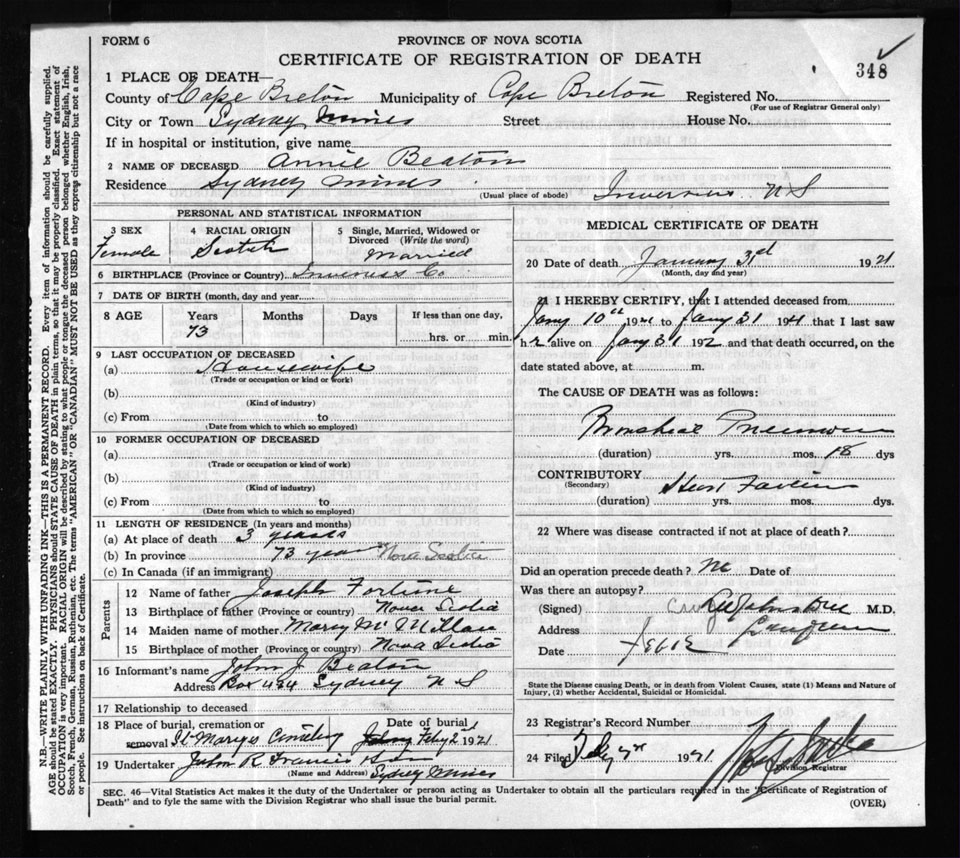 FORM 6
PROVINCE OF NOVA SCOTIA
CERTIFICATE OF REGISTRATION OF DEATH
348
1 PLACE OF DEATH—
County of Cape Breton Municipality of Cape Breton Registered No.
(For use of Registrar General only)
City or Town Sydney Mines Street House No.
If in hospital or institution, give name
2 NAME OF DECEASED Annie Beaton
Residence Sydney Mines (Usual place of abode) Inverness N S
PERSONAL AND STATISTICAL INFORMATION
3 SEX 4 RACIAL ORIGIN 5 Single, Married, Widowed or Divorced (Write the word)
Female Scotch Married
6 BIRTHPLACE (Province or Country) Inverness Co
7 DATE OF BIRTH (month, day and year
8 AGE Years Months Days If less than one day,
73 hrs. or min.
9 LAST OCCUPATION OF DECEASED
(a) Housewife
(Trade or occupation or kind or work)
(b)
(Kind of industry)
(c) From to
(Date from which to which so employed)
10 FORMER OCCUPATION OF DECEASED
(a)
(Trade or occupation or kind of work)
(b)
(Kind of industry)
(c) From to
(Date from which to which so employed)
11 LENGTH OF RESIDENCE (In years and months)
(a) At place of death 3 years
(b) In province 73 years Nova Scotia
(c) In Canada (if an immigrant)
Parents
12 Name of father Joseph Fortune
13 Birthplace of father (Province or country) Nova Scotia
14 Maiden name of mother Mary McMillan
15 Birthplace of mother (Province or country) Nova Scotia
16 Informant's name John J. Beaton
Address Box 484 Sydney N S
17 Relationship to deceased
18 Place of burial, cremation or removal St Marys Cemetery
Date of burial Feby 2nd 1941
19 Undertaker John R Francis & Son
(Name and Address) Sydney Mines
MEDICAL CERTIFICATE OF DEATH
20 Date of death January 31st 1941
(Month, day and year)
21 I HEREBY CERTIFY, that I attended deceased from
Jany 10th 1941 to Jany 31 1941 that I last saw
her alive on Jany 31 194 and that death occurred, on the
date stated above, at m.
The CAUSE OF DEATH was as follows:
Bronchial Pneumonia
(duration) yrs. mos. 18 dys
CONTRIBUTORY
(Secondary) Heart Failure
(duration) yrs. mos. dys.
22 Where was disease contracted if not at place of death?
Did an operation precede death? No Date of
Was there an autopsy?
(Signed) M.D.
Address
Date Feb
State the Disease causing Death, or in death from Violent Causes, state (1) Means and Nature of
Injury, (2) whether Accidental, Suicidal or Homicidal.
23 Registrar's Record Number
24 Filed Feby 1941
Division Registrar
SEC. 46—Vital Statistics Act makes it the duty of the Undertaker or person acting as Undertaker to obtain all the particulars required in the "Certificate of Registration of
Death" and to fyle the same with the Division Registrar who shall issue the burial permit.
(OVER)
N.B.—WRITE PLAINLY WITH UNFADING INK—THIS IS A PERMANENT RECORD. Every item of information should be carefully supplied.
AGE should be stated EXACTLY. PHYSICIANS should STATE CAUSE OF DEATH in plain terms, so that it may be properly classified. Exact statement of
OCCUPATION is very important. RACIAL ORIGIN will be described by stating to what people or tongue the deceased person belonged whether English, Irish,
Scotch, French, German, Russian, Ruthenian, etc. The terms "AMERICAN" OR "CANADIAN" MUST NOT BE USED as they express citizenship but not a race
or people. See instructions on back of Certificate.